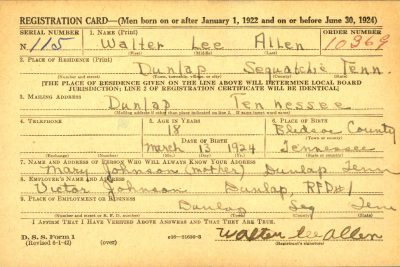 REGISTRATION CARD—(Men born on or after January 1, 1922 and on or before June 30, 1924)
SERIAL NUMBER 1. NAME (Print) ORDER NUMBER
N. 115 Walter Lee Allen 10369
(First) (Middle) (Last)
2. PLACE OF RESIDENCE (Print)
Dunlap Sequatchie Tenn.
(Number and street) (Town, township, village, or city) (County) (State)
[THE PLACE OF RESIDENCE GIVEN ON THE LINE ABOVE WILL DETERMINE LOCAL BOARD
JURISDICTION; LINE 2 OF REGISTRATION CERTIFICATE WILL BE IDENTICAL]
3. MAILING ADDRESS
Dunlap Tennessee
[Mailing address if other than place indicated on line 2. If same insert word same]
4. TELEPHONE 5. AGE IN YEARS 6. PLACE OF BIRTH
18 Bledsoe County
DATE OF BIRTH (Town or county)
March 13 1924 Tennessee
(Mo.) (Day) (Yr.) (State or country)
7. NAME AND ADDRESS OF PERSON WHO WILL ALWAYS KNOW YOUR ADDRESS
Mary Johnson (mother) Dunlap Tenn
8. EMPLOYER'S NAME AND ADDRESS
Victor Johnson Dunlap, RFD#1
9. PLACE OF EMPLOYMENT OR BUSINESS
Dunlap Seq Tenn
(Number and street or R. F. D. number) (Town) (County) (State)
I AFFIRM THAT I HAVE VERIFIED ABOVE ANSWERS AND THAT THEY ARE TRUE.
D. S. S. Form 1
(Revised 6-1-42) (over) Walter Lee Allen
(Registrant's signature)